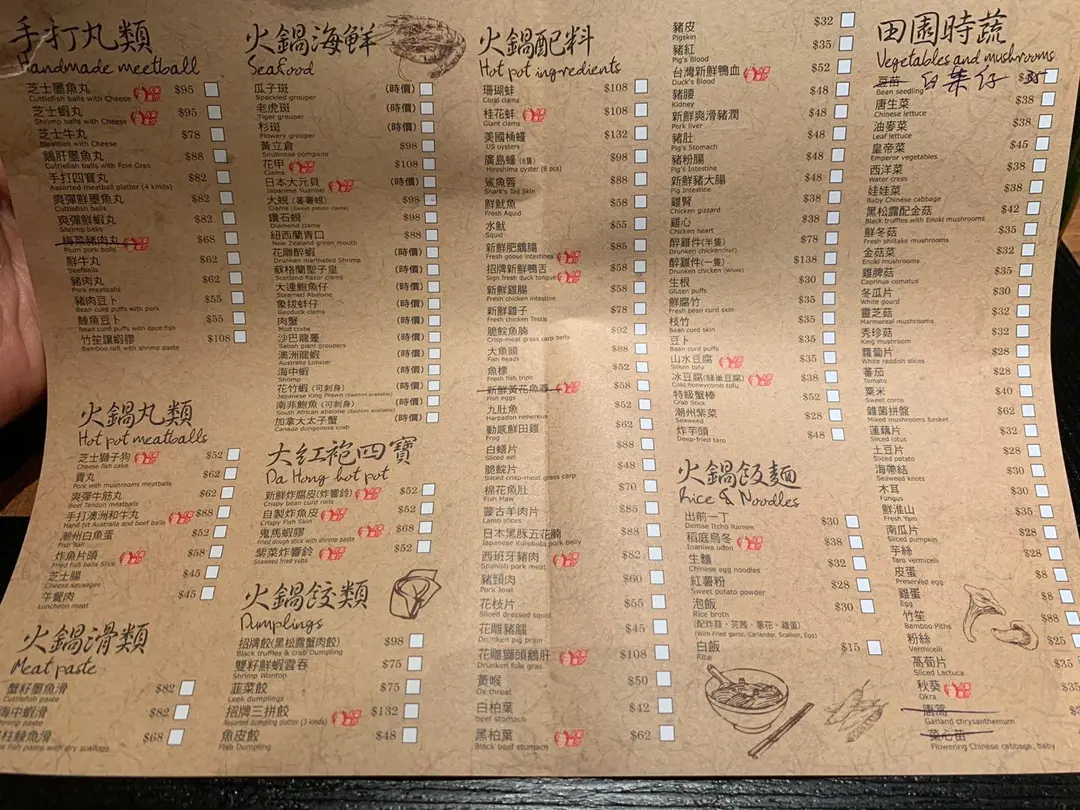 手打丸類
Handmade meetball
芝士墨魚丸 $95
Cuttlefish balls with Cheese
芝士蝦丸 $95
Shrimp balls with Cheese
芝士牛丸 $78
Meatball with Cheese
鵝肝墨魚丸 $88
Cuttlefish balls with Foie Gras
手打四寶丸 $82
Assorted meatball platter (4 kinds)
爽彈鮮墨魚丸 $82
Cuttlefish balls
爽彈鮮蝦丸 $82
Shrimp balls
梅菜豬肉丸 $68
Plum pork balls
鮮牛丸 $62
Beefballs
豬肉丸 $62
Pork meatballs
豬肉豆卜 $55
Bean curd puffs with pork
鯪魚豆卜 $55
Bean curd puffs with dace fish
竹笙讓蝦膠 $108
Bamboo raft with shrimp paste
火鍋丸類
Hot pot meatballs
芝士獅子狗 $52
Cheese fish cake
貢丸 $62
Pork with mushrooms meatballs
爽彈牛筋丸 $62
Beef Tendon meatballs
手打澳洲和牛丸 $88
Hand hit Australia and beef balls
潮州白魚蛋 $52
Fish Ball
炸魚片頭 $58
Fried fish balls Slice
芝士腸 $45
Cheese sausages
午餐肉 $45
Luncheon meat
火鍋滑類
Meat paste
蟹籽墨魚滑 $82
Cuttlefish paste
海中蝦滑 $82
Shrimp paste
柱鯪魚滑 $68
fish paste with dry scallops
火鍋海鮮
Seafood
瓜子斑 (時價)
Speckled grouper
老虎斑 (時價)
Tiger grouper
杉斑 (時價)
Flowery grouper
黃立倉 $98
Snubnose pompano
花甲 $108
Clams
日本大元貝 (時價)
Japanese Yuanbei
大蜆 (蕃薯蜆) $98
Clams (Sweet potato clams)
鑽石蜆 $98
Diamond clams
紐西蘭青口 $88
New Zealand green mouth
花雕醉蝦 (時價)
Drunken marinated Shrimp
蘇格蘭聖子皇 (時價)
Scotland Razor clams
大連鮑魚仔 (時價)
Steamed Abalone
象拔蚌仔 (時價)
Geoduck clams
肉蟹 (時價)
Mud crabs
沙巴龍躉 (時價)
Sabah giant groupers
澳洲龍蝦 (時價)
Australia Lobster
海中蝦 (時價)
Shrimp
花竹蝦 (可刺身) (時價)
Japanese King Prawn (Sashimi available)
南非鮑魚 (可刺身) (時價)
South African abalone (Sashimi available)
加拿大太子蟹 (時價)
Canada dungeness crab
大紅袍四寶
Da Hong hot pot
新鮮炸腐皮(炸響鈴) $52
Crispy bean curd rolls
自製炸魚皮 $52
Crispy Fish Skin
鬼馬蝦膠 $68
Fried dough stick with shrimp paste
紫菜炸響鈴 $52
Seaweed fried yuba
火鍋餃類
Dumplings
招牌餃(黑松露蟹肉餃) $98
Black truffles & crab Dumpling
雙籽鮮蝦雲吞 $75
Shrimp Wonton
韮菜餃 $75
Leek dumplings
招牌三拼餃 $132
Assorted dumpling platter (3 kinds)
魚皮餃 $48
Fish Dumpling
火鍋配料
Hot pot ingredients
珊瑚蚌 $108
Coral clams
桂花蚌 $108
Giant clams
美國桶蠔 $132
US oysters
廣島蠔 (6隻) $98
Hiroshima oyster (6 pcs)
鯊魚唇 $88
Shark's Tail Skin
鮮魷魚 $58
Fresh Aquid
水魷 $55
Squid
新鮮肥鵝腸 $85
Fresh goose intestines
招牌新鮮鴨舌 $58
Sign fresh duck tongue
新鮮雞腸 $58
Fresh chicken intestine
新鮮雞子 $78
Fresh chicken Testis
脆鯇魚腩 $92
Crisp-meat grass carp belly
大魚頭 $88
Fish heads
魚標 $52
Fresh fish tripe
新鮮黃花魚春 $58
Fish eggs
九肚魚 $52
Harpadon nehereus
動感鮮田雞 $62
Frog
白鱔片 $88
Sliced eel
脆鯇片 $48
Sliced crisp-meat grass carp
棉花魚肚 $70
Fish Maw
蒙古羊肉片 $85
Lamb slices
日本黑豚五花腩 $88
Japanese Kurobuta pork belly
西班牙豬肉 $82
Spanish pork meat
豬頸肉 $60
Pork Jowl
花枝片 $55
Sliced dressed squid
花雕豬腦 $45
Drunken pig brain
花雕獅頭鵝肝 $108
Drunken foie gras
黃喉 $50
Ox throat
白柏葉 $42
beef stomach
黑柏葉 $62
Black beef stomach
豬皮 $32
Pigskin
豬紅 $35
Pig's Blood
台灣新鮮鴨血 $52
Duck's Blood
豬腰 $42
Kidney
新鮮爽滑豬潤 $48
Pork liver
豬肚 $48
Pig's Stomach
豬粉腸 $48
Pig's Intestine
新鮮豬大腸 $48
Pig Intestine
雞腎 $38
Chicken gizzard
雞心 $38
Chicken heart
醉雞件(半隻) $78
Drunken chicken(Half)
醉雞件(一隻) $138
Drunken chicken (Whole)
生根 $30
Gluten puffs
鮮腐竹 $35
Fresh bean curd skin
枝竹 $35
Bean curd skin
豆卜 $35
Bean curd puffs
山水豆腐 $35
Silken tofu
冰豆腐(蜂巢豆腐) $38
Cold honeycomb tofu
特級蟹棒 $52
Crab Stick
潮州紫菜 $28
Seaweed
炸芋頭 $48
Deep-fried taro
火鍋飯麵
Rice & Noodles
出前一丁 $30
Demae Itcho Ramen
稻庭烏冬 $38
Inaniwa udon
生麵 $32
Chinese egg noodles
紅薯粉 $28
Sweet potato powder
泡飯 $30
Rice broth
(配炸蒜、芫茜、蔥花、雞蛋)
(With Fried garlic, Coriander, Scallion, Egg)
白飯 $15
Rice
田園時蔬
Vegetables and mushrooms
豆苗 白菜仔
Bean seedling
唐生菜 $38
Chinese lettuce
油麥菜 $38
Leaf lettuce
皇帝菜 $45
Emperor vegetables
西洋菜 $38
Water cress
娃娃菜 $38
Baby Chinese cabbage
黑松露配金菇 $42
Black truffles with Enoki mushrooms
鮮冬菇 $35
Fresh shiitake mushrooms
金菇菜 $32
Enoki mushrooms
雞脾菇 $35
Coprinus comatus
冬瓜片 $28
White gourd
靈芝菇 $32
Marmoreal mushrooms
秃珍菇 $32
King mushroom
蘿蔔片 $28
White raddish slices
蕃茄 $28
Tomato
粟米 $40
Sweet corns
雜菌拼盤 $62
Mixed mushrooms basket
蓮藕片 $32
Sliced lotus
土豆片 $28
Sliced potato
海帶結 $30
Seaweed knots
木耳 $30
Fungus
鮮淮山 $35
Fresh Yam
南瓜片 $28
Sliced pumpkin
芋絲 $28
Taro vermicelli
皮蛋 $8
Preserved egg
雞蛋 $8
Egg
竹笙 $88
Bamboo Piths
粉絲 $25
Vermicelli
萵筍片 $35
Sliced Lactuca
秋葵 $35
Okra
唐蒿
Garland chrysanthemum
菜心苗
Flowering Chinese cabbage, baby